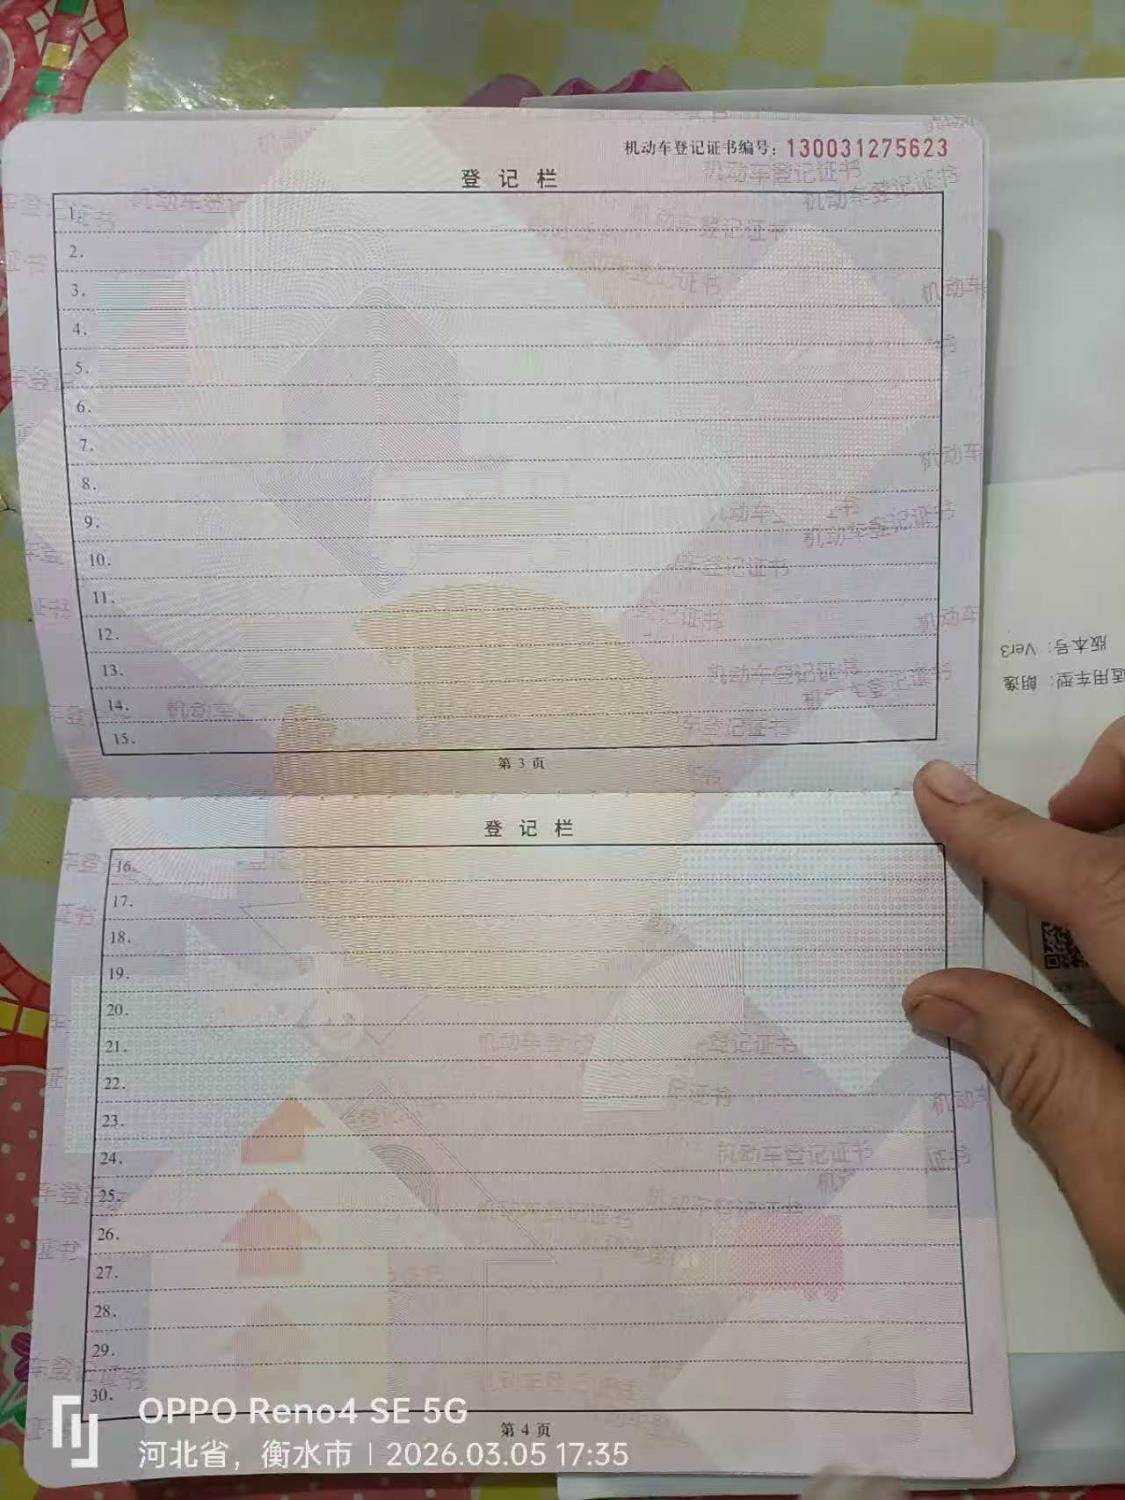 机动车登记证书编号：130031275623
登记栏
1.
2.
3.
4.
5.
6.
7.
8.
9.
10.
11.
12.
13.
14.
15.
第 3 页
登记栏
16.
17.
18.
19.
20.
21.
22.
23.
24.
25.
26.
27.
28.
29.
30.
第 4 页
版本号：Ver3
适用车型：朗逸
机动车登记证书
机动车登记证书
机动车登记证书
机动车登记证书
OPPO Reno4 SE 5G
河北省，衡水市 | 2026.03.05 17:35